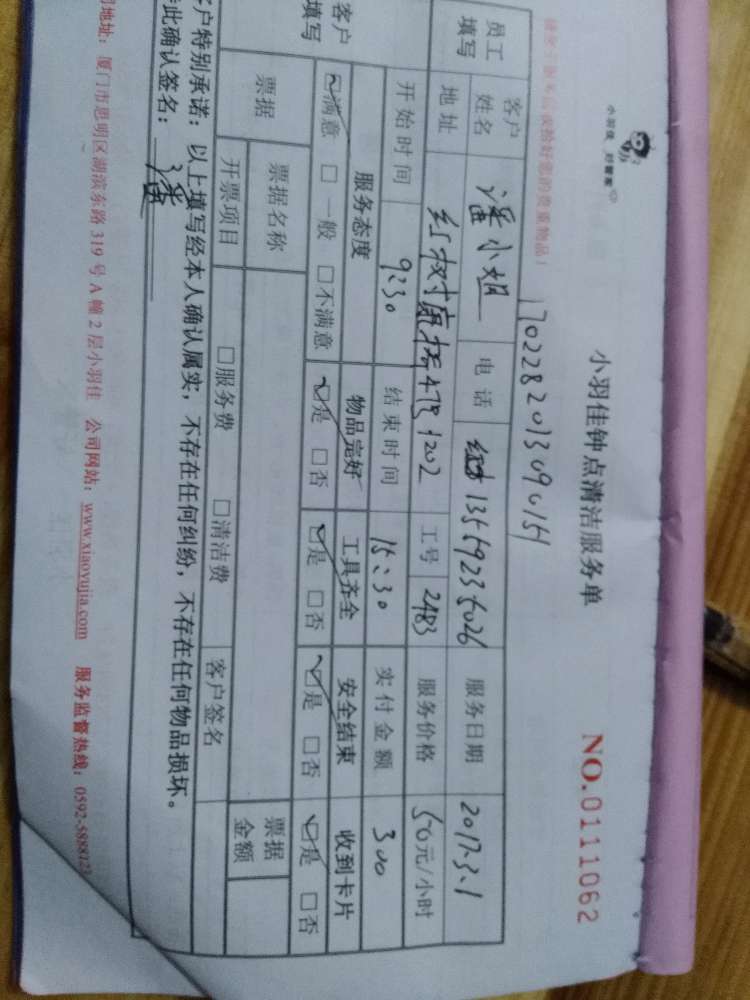 小羽佳 好管家
小羽佳钟点清洁服务单
NO.0111062
170228201309015
员工填写
客户姓名 潘小姐 电话 13559235026 服务日期 2017.3.1
地址 工号 2483 服务价格 50元/小时
开始时间 9:30 结束时间 15:30 实付金额 300
客户填写
服务态度 物品完好 工具齐全 安全结束 收到卡片
☑满意 □一般 □不满意 ☑是 □否 ☑是 □否 ☑是 □否 ☑是 □否
票据 票据名称 票据金额
开票项目 □服务费 □清洁费 客户签名
客户特别承诺：以上填写经本人确认属实，不存在任何纠纷，不存在任何物品损坏。
此确认签名：潘
地址：厦门市思明区湖滨东路319号A幢2层小羽佳 公司网站：www.xiaoyujia.com 服务监督热线：0592-5888123